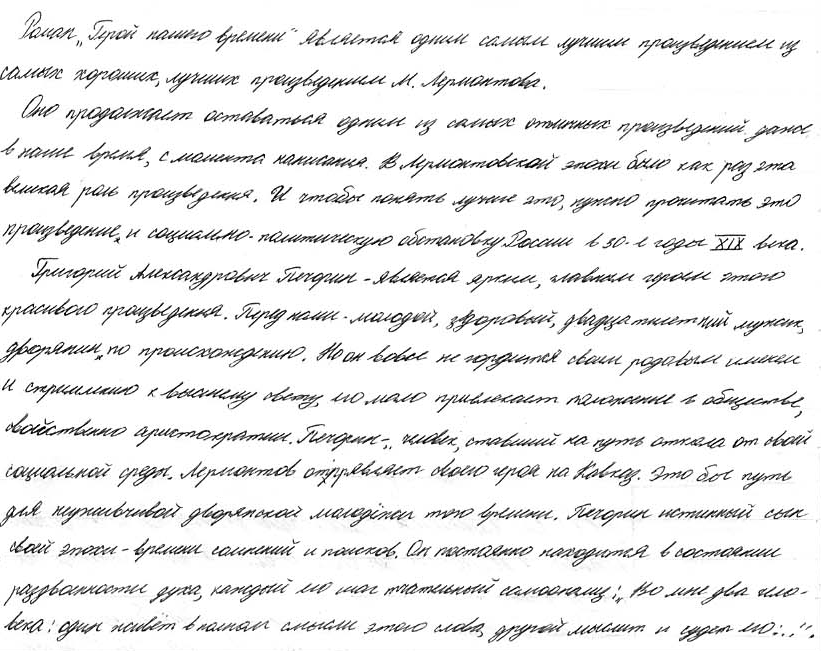 Роман „Герой нашего времени" является одним самым лучшим произведением из
самых хороших, лучших произведением М. Лермонтова.
Оно продолжает оставаться одним из самых отличных произведений даже
в наше время, с момента написания. В Лермонтовской эпохи было как раз эта
великая роль произведения. И чтобы понять лучше это, нужно прочитать это
произведение, и социально-политическую обстановку России в 30-е годы XIX века.
Григорий Александрович Печорин - является ярким, главным героем этого
красивого произведения. Перед нами - молодой, здоровый, двадцатилетний мужик,
дворянин, по происхождению. Но он вовсе не гордится своим родовым именем
и стремлению к высшему свету, его мало привлекает положение в обществе,
свойственно аристократии. Печорин-„ человек, ставший на путь откола от своей
социальной среды. Лермонтов отправляет своего героя на Кавказ. Это был путь
для неуживчивой дворянской молодёжи того времени. Печорин истинный сын
своей эпохи - времени сомнений и поисков. Он постоянно находится в состоянии
раздвоенности духа, каждый его шаг тчательный самоанализ: „Во мне два чело-
века: один живёт в полном смысле этого слова, другой мыслит и судет его:..!".